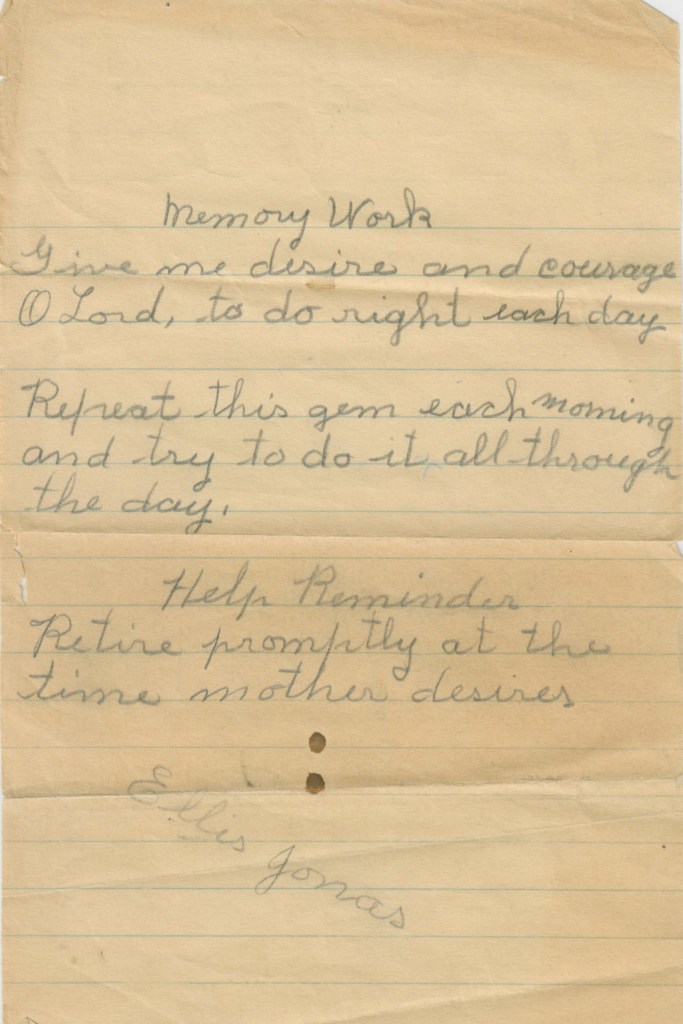 Memory Work
Give me desire and courage
O Lord, to do right each day
Repeat this gem each morning
and try to do it, all through
the day.
Help Reminder
Retire promptly at the
time mother desires
Ellis Jonas